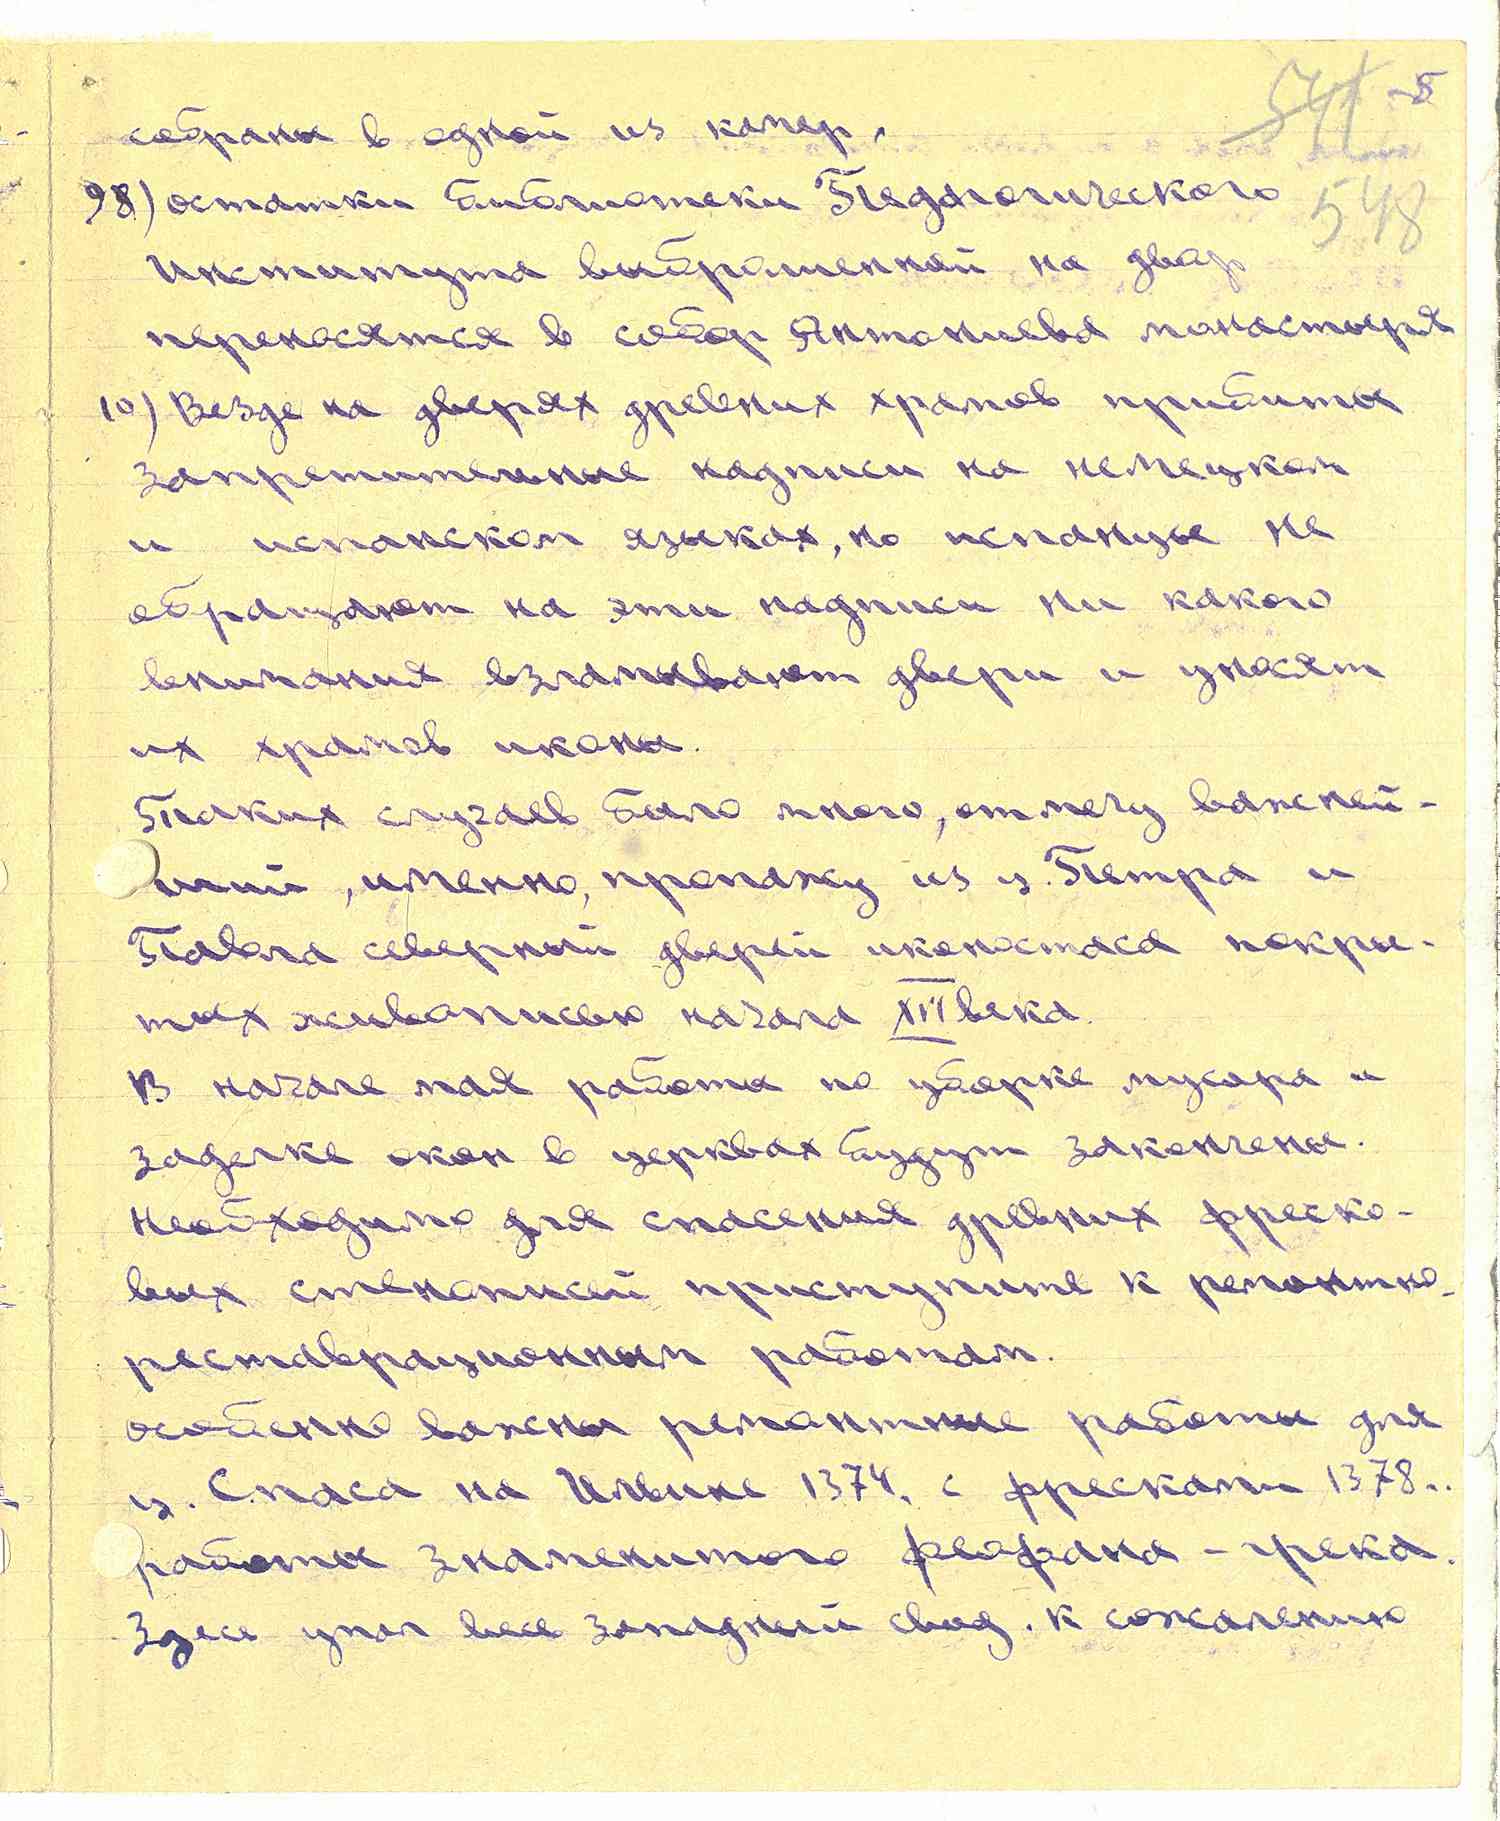 541 -5
собраны в одной из камер,
548
98) остатки библиотеки Педагогического
Института выброшенной на двор
переносятся в собор Антониева монастыря
10) Везде на дверях древних храмов прибиты
запретительные надписи на немецком
и испанском языках, но испанцы не
обращают на эти надписи ни какого
внимания взламывают двери и уносят
их храмов иконы.
Таких случаев было много, отмечу важней-
ший, именно, пропажу из ц. Петра и
Павла северный дверей иконостаса покры-
тых живописью начала XVI века.
В начале мая работы по уборке мусора и
заделке окон в церквах будут закончены.
Необходимо для спасения древних фреско-
вых стенописей приступить к ремонтно-
реставрационным работам.
Особенно важны ремонтные работы для
ц. Спаса на Ильине 1374, с фресками 1378..
работы знаменитого Феофана - грека.
Здесь упал весь западный свод. К сожалению